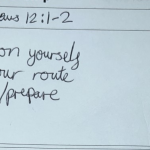 ews 12:1-2
on yourself
our route
/prepare